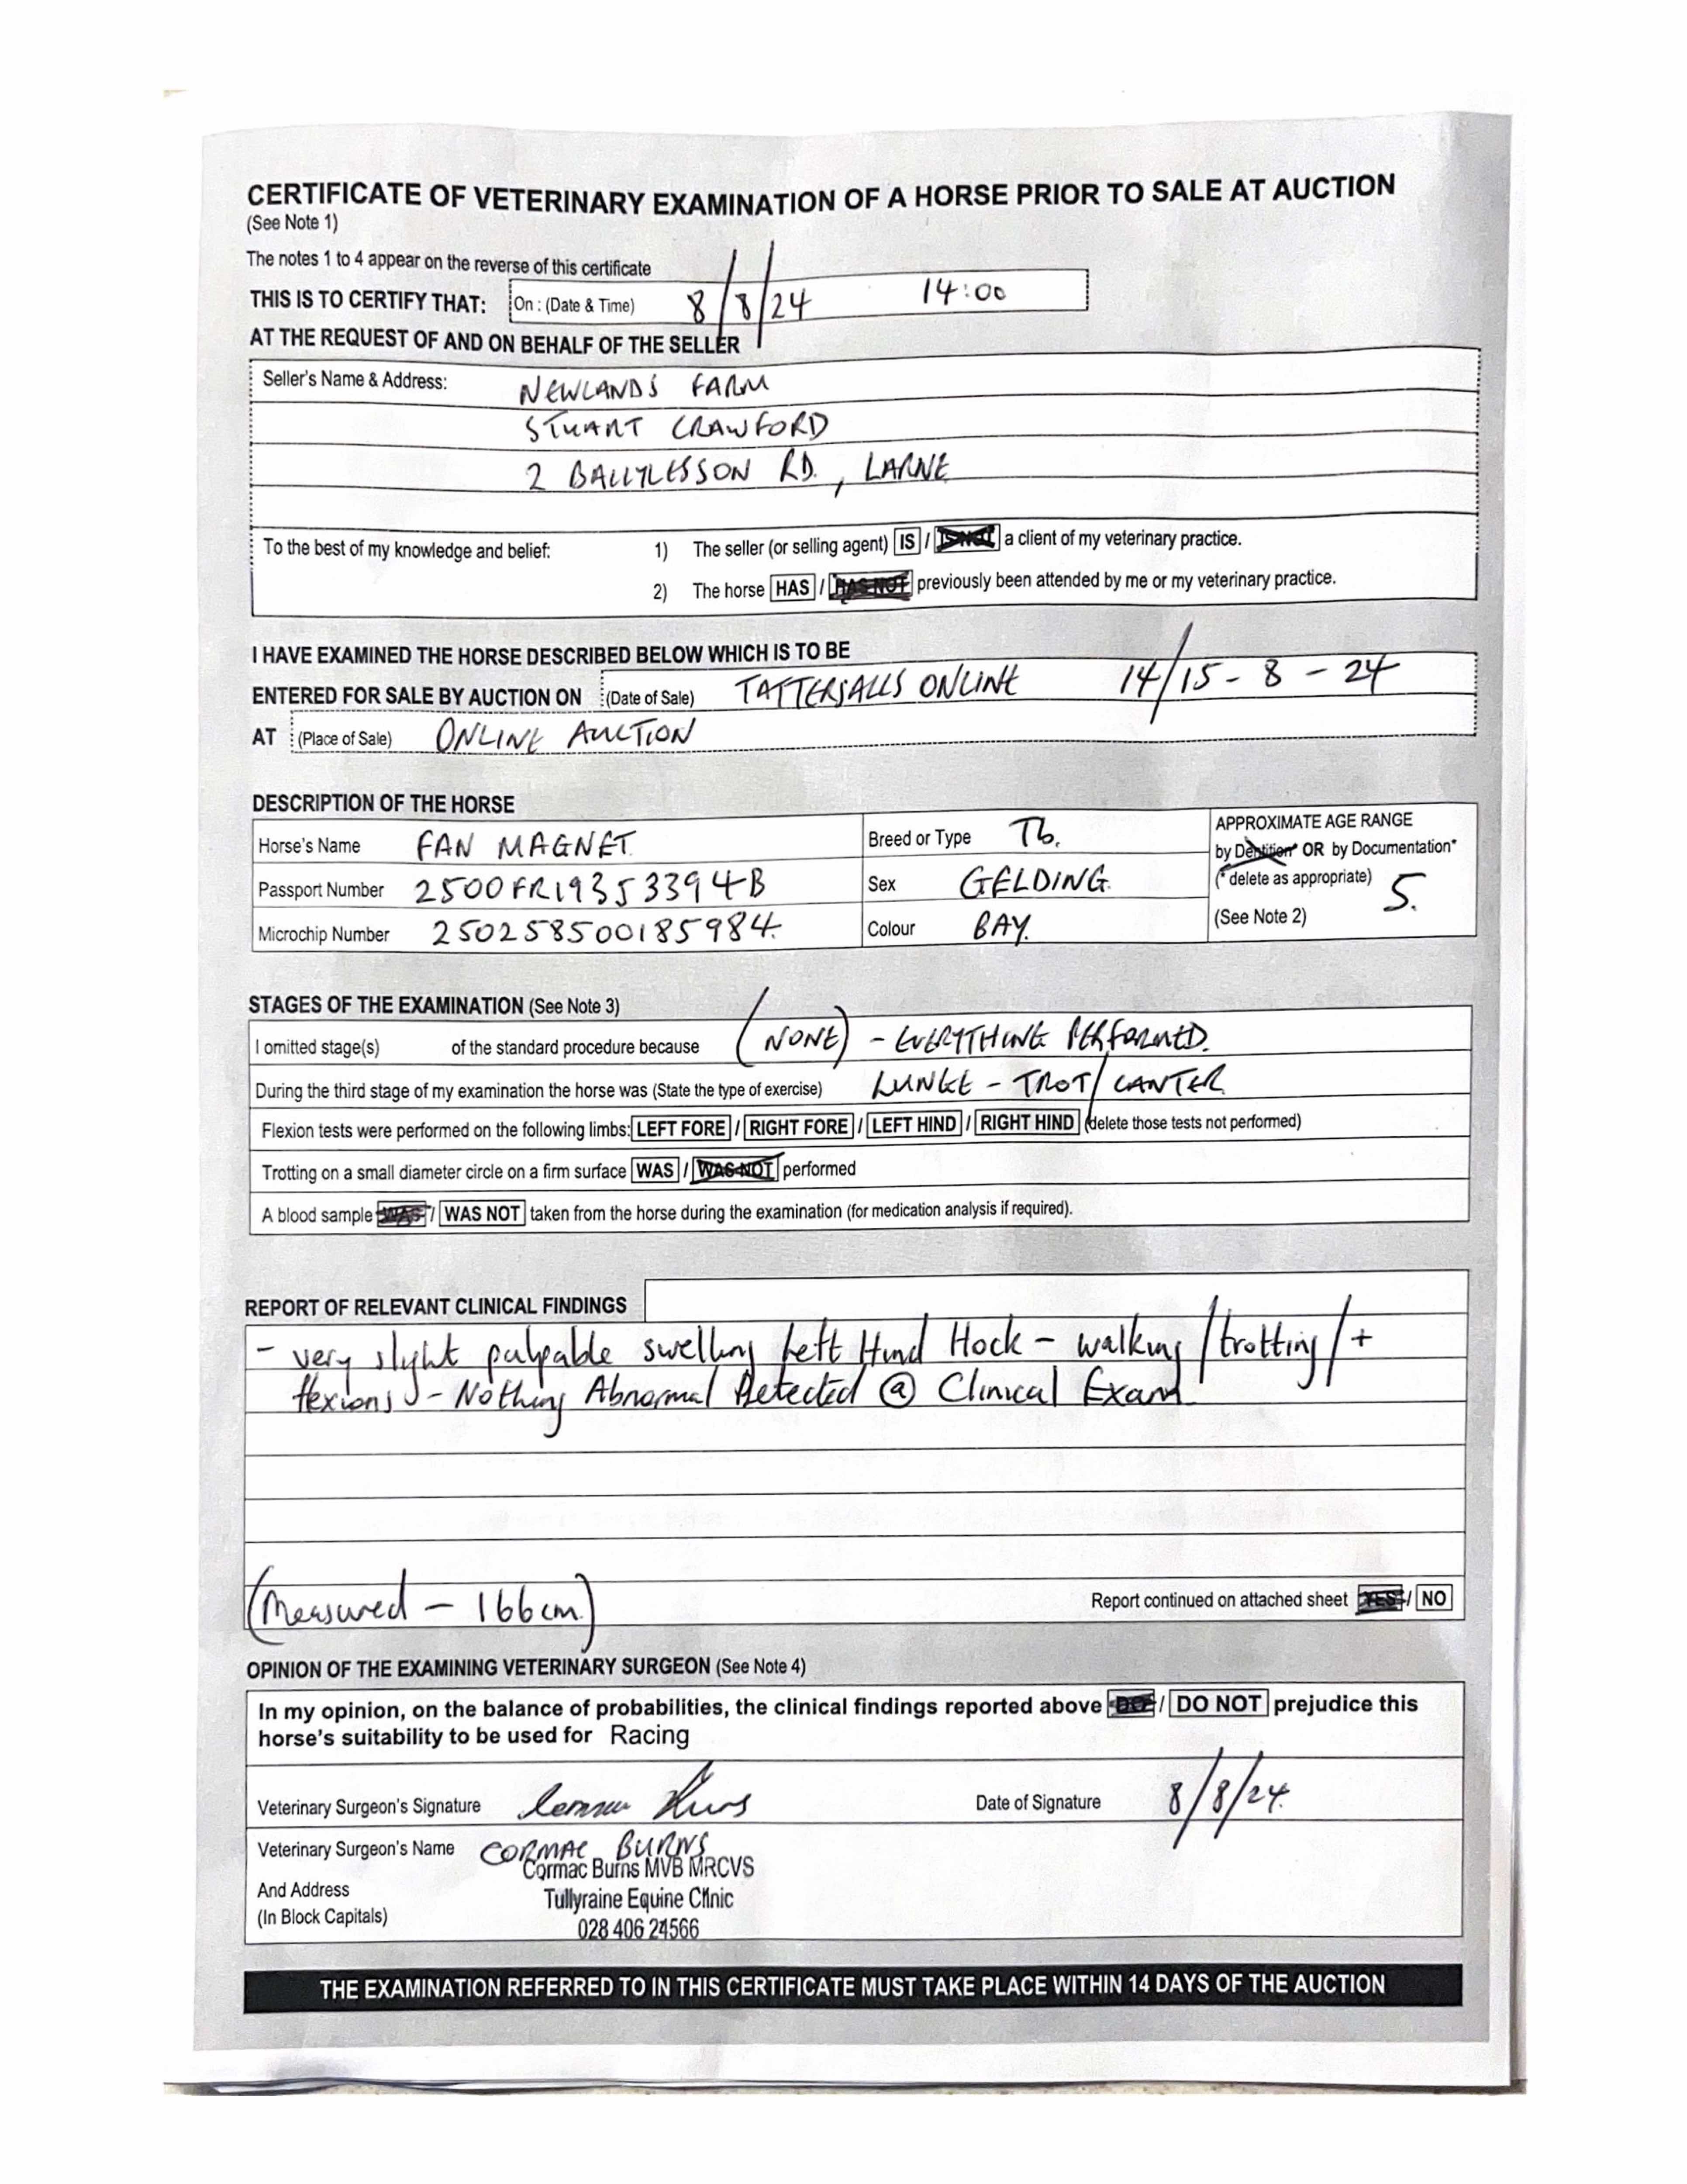 CERTIFICATE OF VETERINARY EXAMINATION OF A HORSE PRIOR TO SALE AT AUCTION
(See Note 1)
The notes 1 to 4 appear on the reverse of this certificate
THIS IS TO CERTIFY THAT: On : (Date & Time) 8/8/24 14:00
AT THE REQUEST OF AND ON BEHALF OF THE SELLER
Seller's Name & Address: NEWLANDS FARM
STUART CRAWFORD
2 BALLYLESSON RD., LARNE
To the best of my knowledge and belief: 1) The seller (or selling agent) IS / IS NOT a client of my veterinary practice.
2) The horse HAS / HAS NOT previously been attended by me or my veterinary practice.
I HAVE EXAMINED THE HORSE DESCRIBED BELOW WHICH IS TO BE
ENTERED FOR SALE BY AUCTION ON (Date of Sale) TATTERSALLS ONLINE 14/15-8-24
AT (Place of Sale) ONLINE AUCTION
DESCRIPTION OF THE HORSE
Horse's Name FAN MAGNET. Breed or Type Tb.
Passport Number 2500FR19353394B Sex GELDING.
Microchip Number 250258500185984. Colour BAY.
APPROXIMATE AGE RANGE
by Dentition* OR by Documentation*
(* delete as appropriate) 5.
(See Note 2)
STAGES OF THE EXAMINATION (See Note 3)
I omitted stage(s) of the standard procedure because (NONE) - EVERYTHING PERFORMED.
During the third stage of my examination the horse was (State the type of exercise) LUNGE - TROT/CANTER
Flexion tests were performed on the following limbs: LEFT FORE / RIGHT FORE / LEFT HIND / RIGHT HIND (delete those tests not performed)
Trotting on a small diameter circle on a firm surface WAS / WAS NOT performed
A blood sample WAS / WAS NOT taken from the horse during the examination (for medication analysis if required).
REPORT OF RELEVANT CLINICAL FINDINGS
- very slight palpable swelling Left Hind Hock - walking/trotting/+
flexions - Nothing Abnormal Detected @ Clinical Exam
(Measured - 166cm.)
Report continued on attached sheet YES / NO
OPINION OF THE EXAMINING VETERINARY SURGEON (See Note 4)
In my opinion, on the balance of probabilities, the clinical findings reported above DO / DO NOT prejudice this
horse's suitability to be used for Racing
Veterinary Surgeon's Signature Cormac Burns Date of Signature 8/8/24.
Veterinary Surgeon's Name CORMAC BURNS
Cormac Burns MVB MRCVS
And Address Tullyraine Equine Clinic
(In Block Capitals) 028 406 24566
THE EXAMINATION REFERRED TO IN THIS CERTIFICATE MUST TAKE PLACE WITHIN 14 DAYS OF THE AUCTION